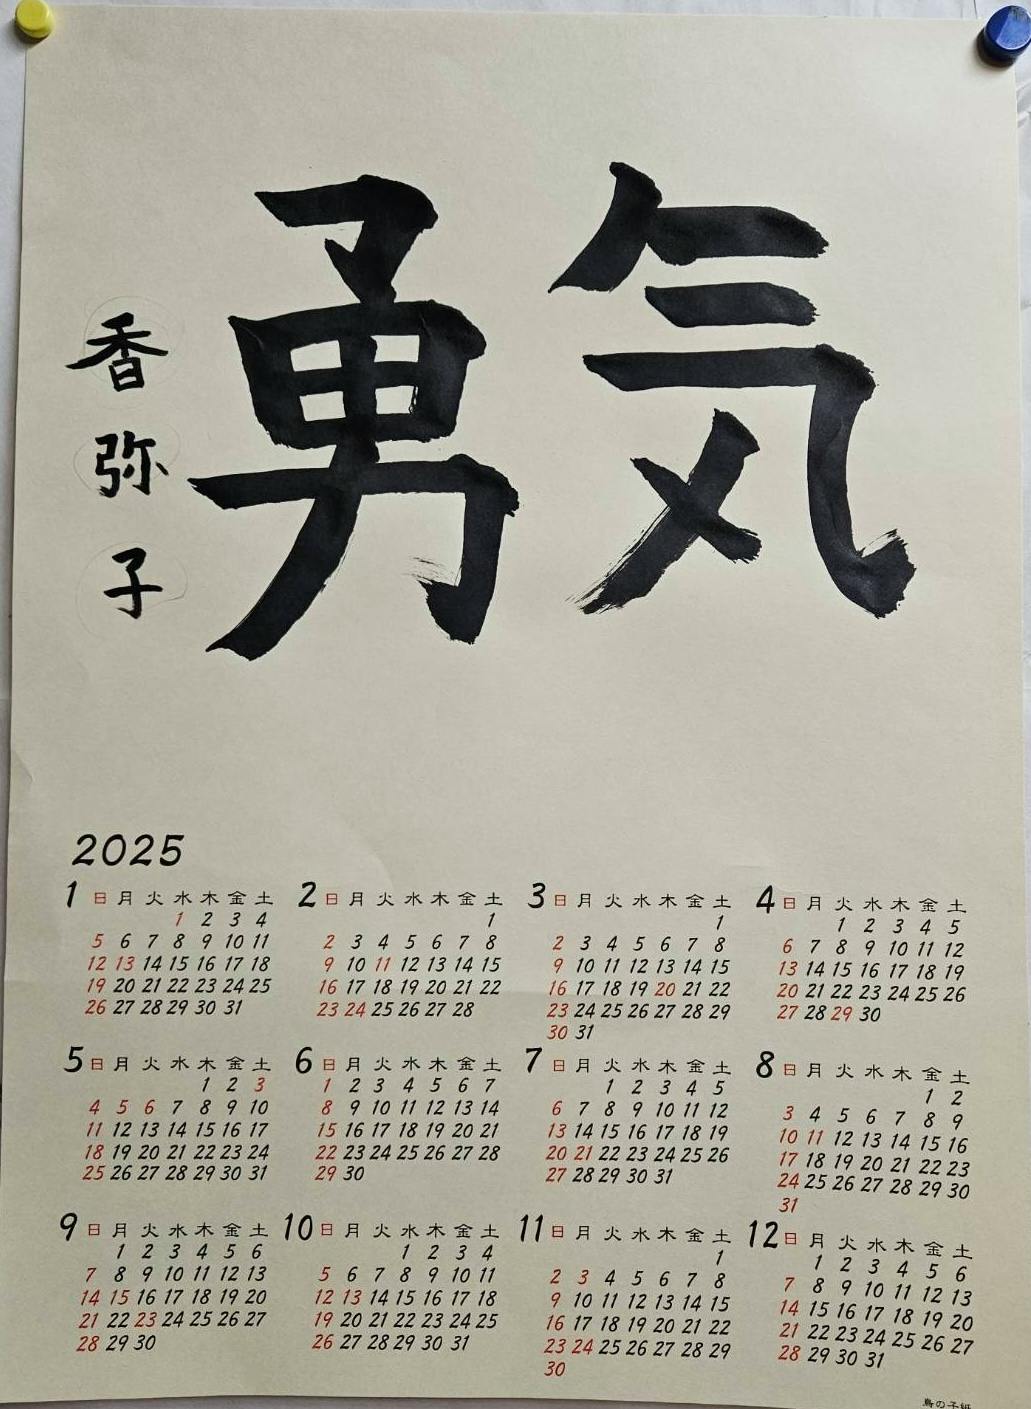 勇気
香弥子
2025
1
日 月 火 水 木 金 土
1 2 3 4
5 6 7 8 9 10 11
12 13 14 15 16 17 18
19 20 21 22 23 24 25
26 27 28 29 30 31
2
日 月 火 水 木 金 土
1
2 3 4 5 6 7 8
9 10 11 12 13 14 15
16 17 18 19 20 21 22
23 24 25 26 27 28
3
日 月 火 水 木 金 土
1
2 3 4 5 6 7 8
9 10 11 12 13 14 15
16 17 18 19 20 21 22
23 24 25 26 27 28 29
30 31
4
日 月 火 水 木 金 土
1 2 3 4 5
6 7 8 9 10 11 12
13 14 15 16 17 18 19
20 21 22 23 24 25 26
27 28 29 30
5
日 月 火 水 木 金 土
1 2 3
4 5 6 7 8 9 10
11 12 13 14 15 16 17
18 19 20 21 22 23 24
25 26 27 28 29 30 31
6
日 月 火 水 木 金 土
1 2 3 4 5 6 7
8 9 10 11 12 13 14
15 16 17 18 19 20 21
22 23 24 25 26 27 28
29 30
7
日 月 火 水 木 金 土
1 2 3 4 5
6 7 8 9 10 11 12
13 14 15 16 17 18 19
20 21 22 23 24 25 26
27 28 29 30 31
8
日 月 火 水 木 金 土
1 2
3 4 5 6 7 8 9
10 11 12 13 14 15 16
17 18 19 20 21 22 23
24 25 26 27 28 29 30
31
9
日 月 火 水 木 金 土
1 2 3 4 5 6
7 8 9 10 11 12 13
14 15 16 17 18 19 20
21 22 23 24 25 26 27
28 29 30
10
日 月 火 水 木 金 土
1 2 3 4
5 6 7 8 9 10 11
12 13 14 15 16 17 18
19 20 21 22 23 24 25
26 27 28 29 30 31
11
日 月 火 水 木 金 土
1
2 3 4 5 6 7 8
9 10 11 12 13 14 15
16 17 18 19 20 21 22
23 24 25 26 27 28 29
30
12
日 月 火 水 木 金 土
1 2 3 4 5 6
7 8 9 10 11 12 13
14 15 16 17 18 19 20
21 22 23 24 25 26 27
28 29 30 31
鳥の子紙